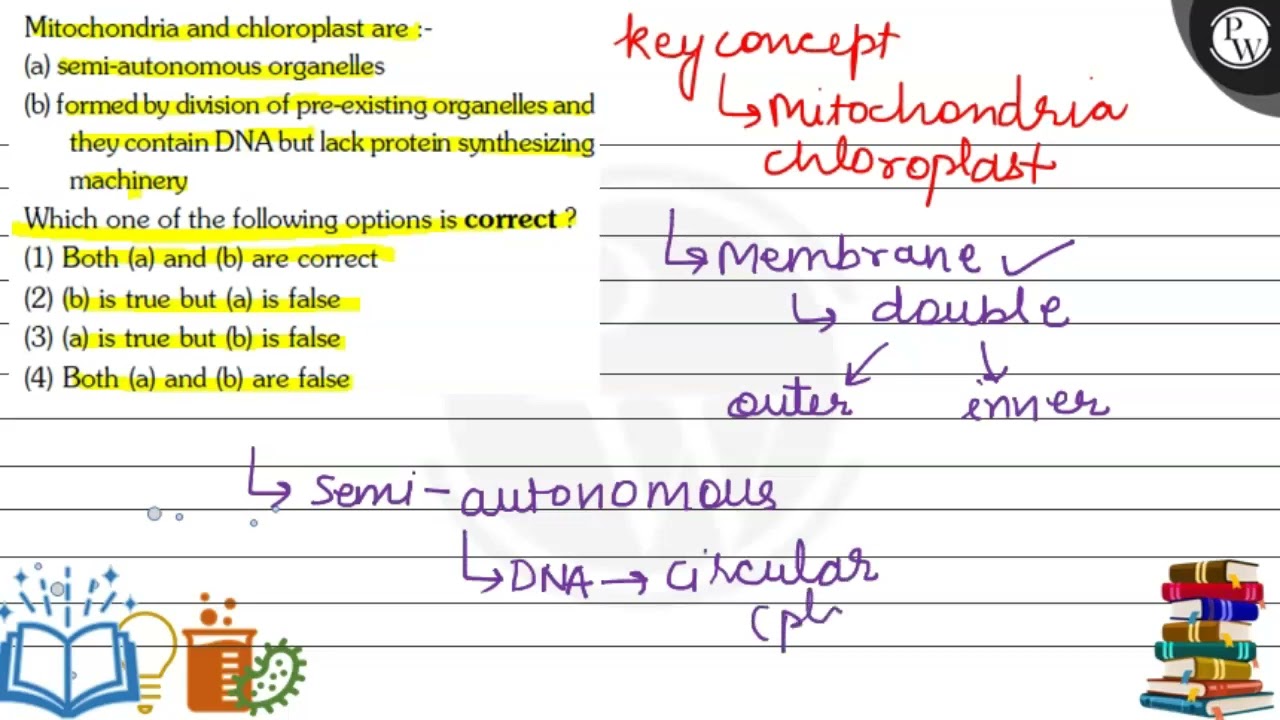 Mitochondria and chloroplast are :-
(a) semi-autonomous organelles
(b) formed by division of pre-existing organelles and
they contain DNA but lack protein synthesizing
machinery
Which one of the following options is correct ?
(1) Both (a) and (b) are correct
(2) (b) is true but (a) is false
(3) (a) is true but (b) is false
(4) Both (a) and (b) are false
key concept
↳ Mitochondria
chloroplast
↳ Membrane ✓
↳ double
outer inner
↳ semi-autonomous
↳ DNA → circular
PW